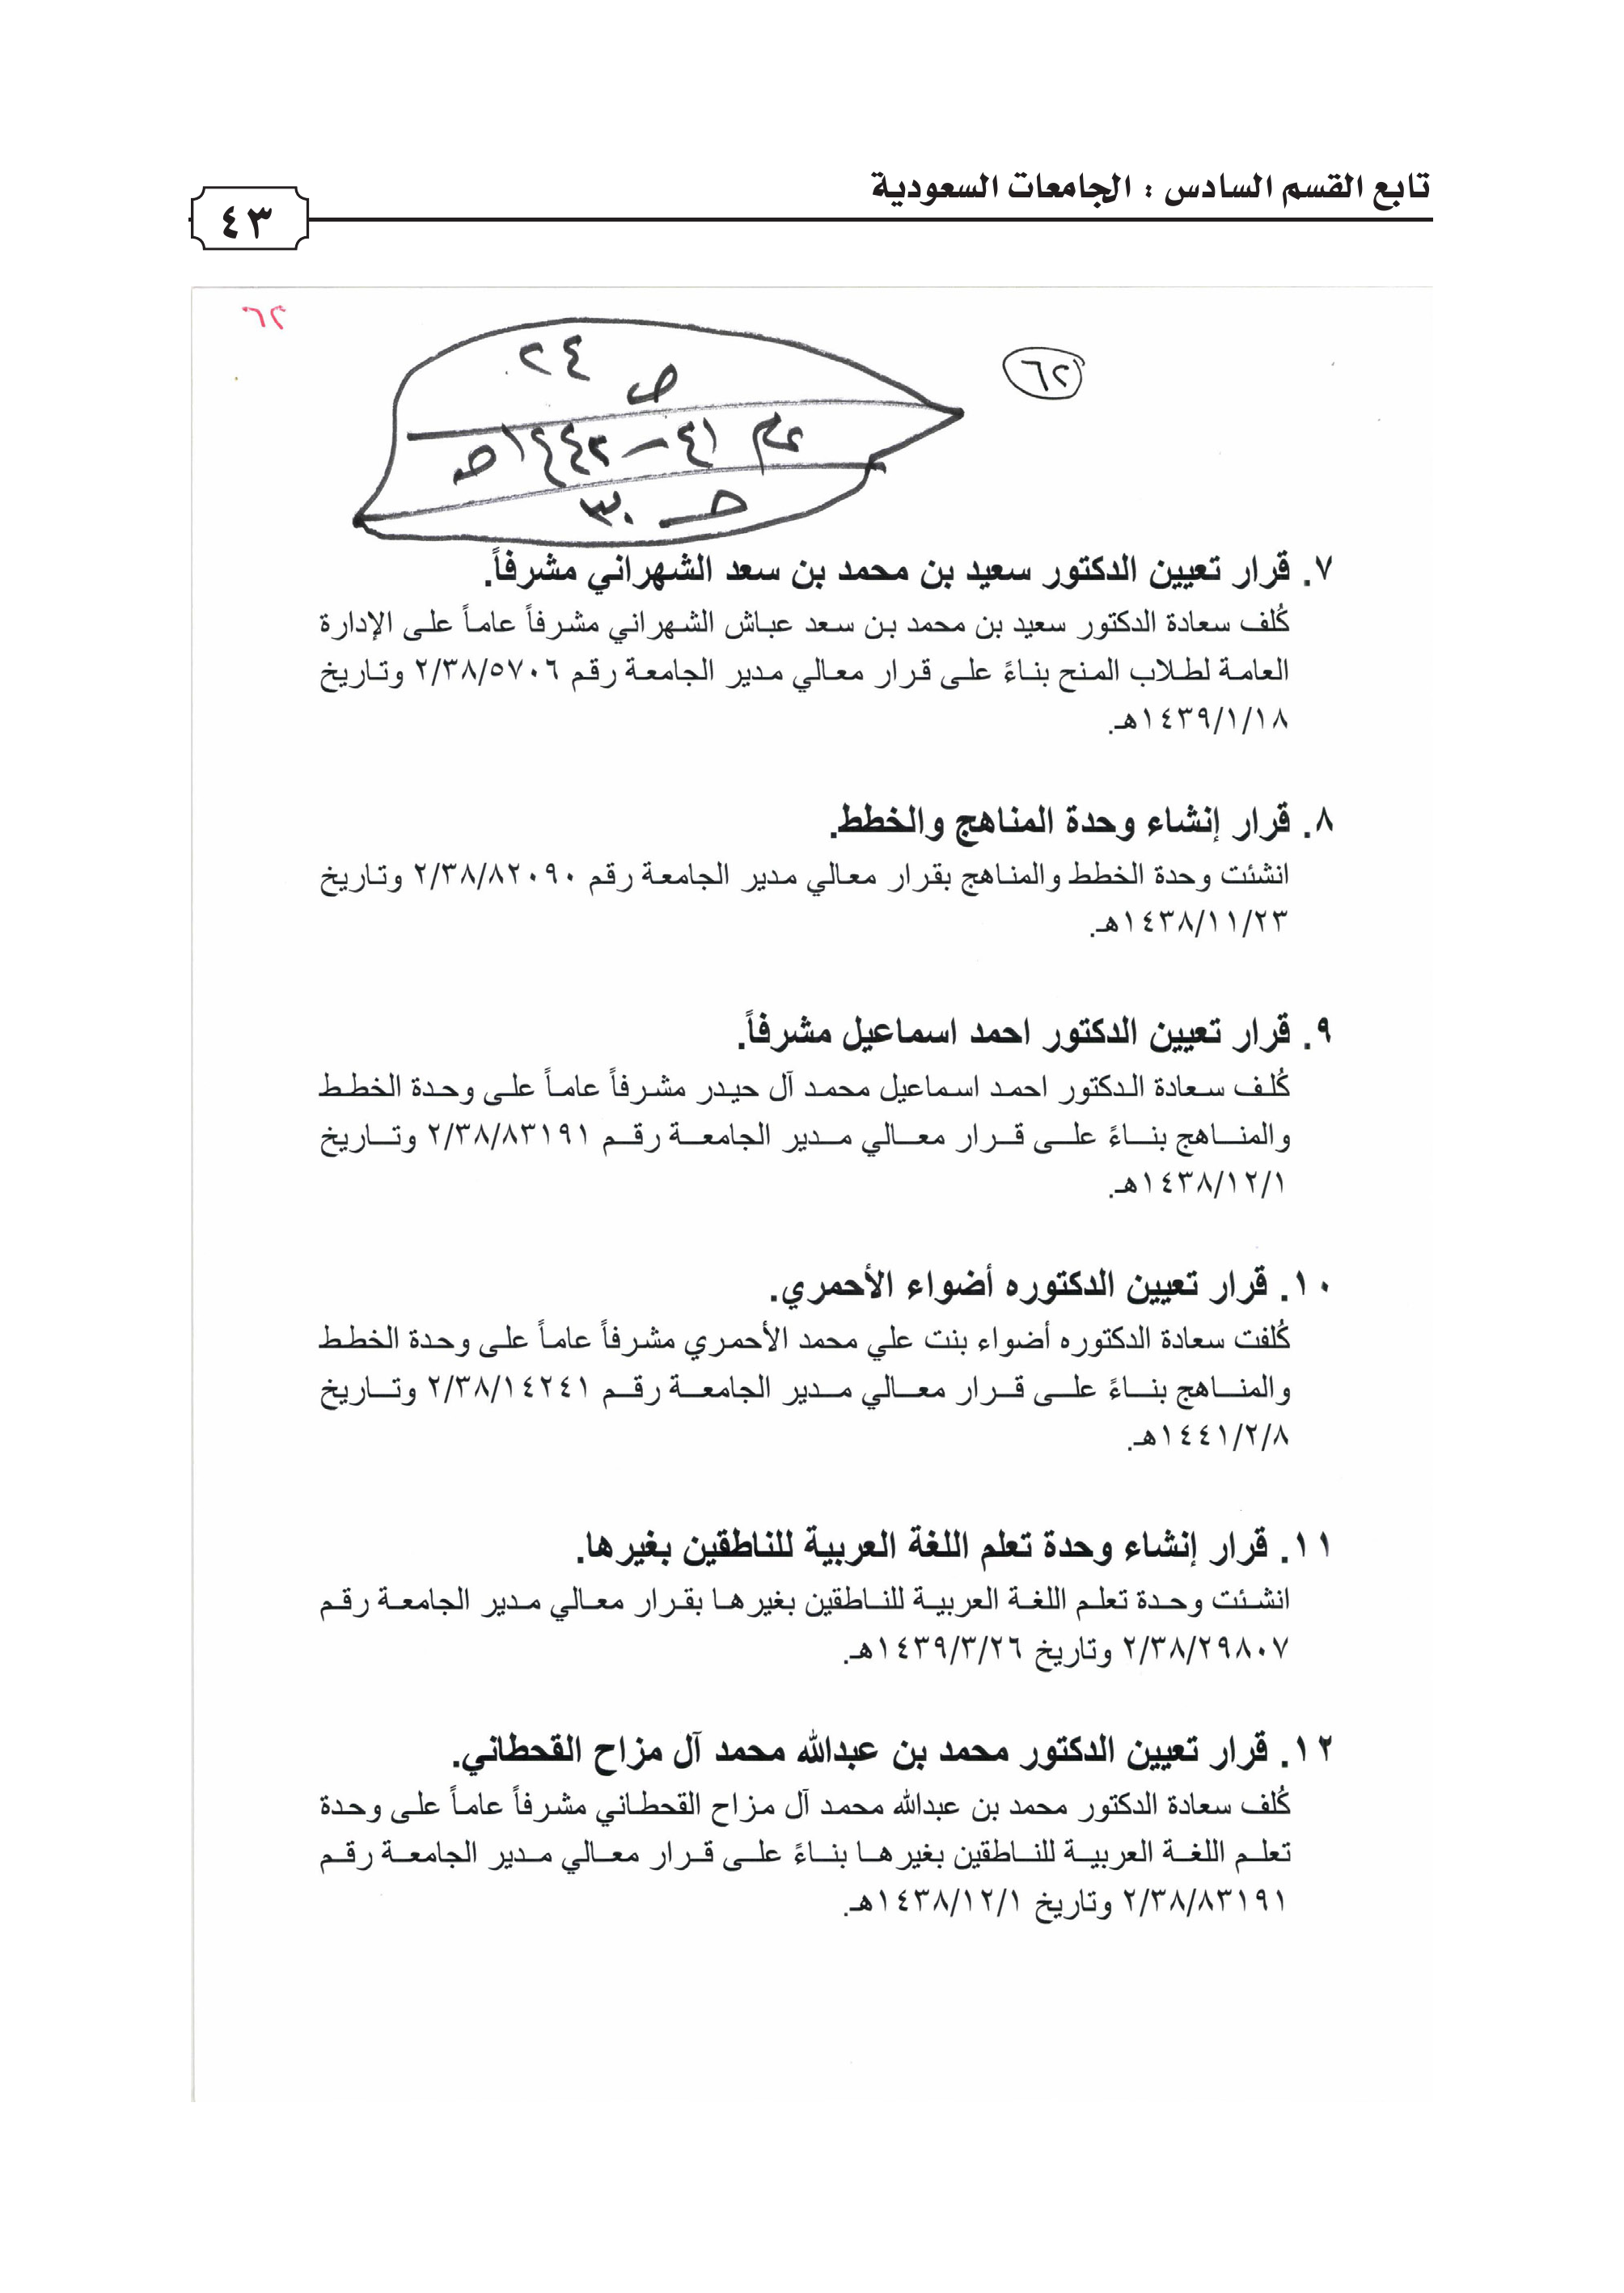 تابع القسم السادس : الجامعات السعودية
٤٣
٦٢
٦٢
ص ٢٤
عام ٤١ – ١٤٤٢هـ
حـ ٣٠
٧. قرار تعيين الدكتور سعيد بن محمد بن سعد الشهراني مشرفاً.
كُلف سعادة الدكتور سعيد بن محمد بن سعد عباش الشهراني مشرفاً عاماً على الإدارة
العامة لطلاب المنح بناءً على قرار معالي مدير الجامعة رقم ٢/٣٨/٥٧٠٦ وتاريخ
١٤٣٩/١/١٨هـ.
٨. قرار إنشاء وحدة المناهج والخطط.
انشئت وحدة الخطط والمناهج بقرار معالي مدير الجامعة رقم ٢/٣٨/٨٢٠٩٠ وتاريخ
١٤٣٨/١١/٢٣هـ.
٩. قرار تعيين الدكتور احمد اسماعيل مشرفاً.
كُلف سعادة الدكتور احمد اسماعيل محمد آل حيدر مشرفاً عاماً على وحدة الخطط
والمناهج بناءً على قرار معالي مدير الجامعة رقم ٢/٣٨/٨٣١٩١ وتاريخ
١٤٣٨/١٢/١هـ.
١٠. قرار تعيين الدكتوره أضواء الأحمري.
كُلفت سعادة الدكتوره أضواء بنت علي محمد الأحمري مشرفاً عاماً على وحدة الخطط
والمناهج بناءً على قرار معالي مدير الجامعة رقم ٢/٣٨/١٤٢٤١ وتاريخ
١٤٤١/٢/٨هـ.
١١. قرار إنشاء وحدة تعلم اللغة العربية للناطقين بغيرها.
انشئت وحدة تعلم اللغة العربية للناطقين بغيرها بقرار معالي مدير الجامعة رقم
٢/٣٨/٢٩٨٠٧ وتاريخ ١٤٣٩/٣/٢٦هـ.
١٢. قرار تعيين الدكتور محمد بن عبدالله محمد آل مزاح القحطاني.
كُلف سعادة الدكتور محمد بن عبدالله محمد آل مزاح القحطاني مشرفاً عاماً على وحدة
تعلم اللغة العربية للناطقين بغيرها بناءً على قرار معالي مدير الجامعة رقم
٢/٣٨/٨٣١٩١ وتاريخ ١٤٣٨/١٢/١هـ.